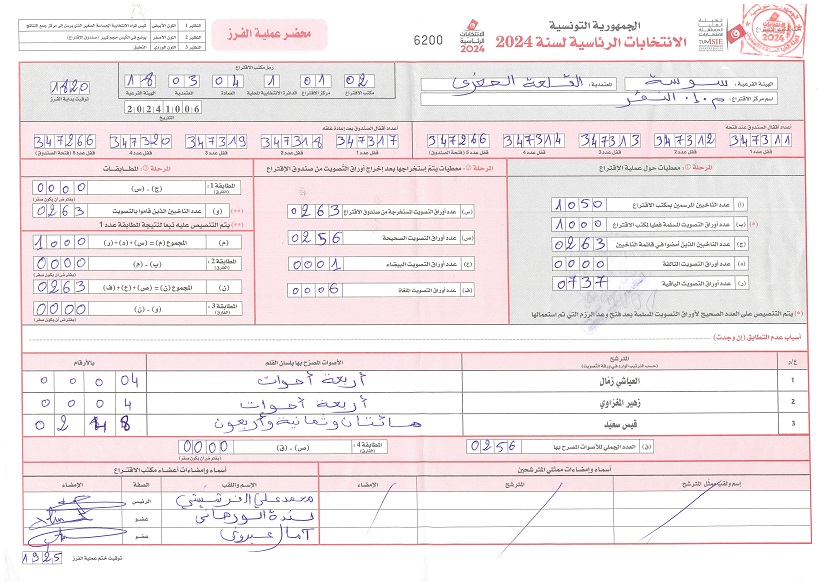 الجمهورية التونسية
الانتخابات الرئاسية لسنة 2024
الانتخابات الرئاسية 2024
6200
محضر عملية الفرز
النظير 1 اللون الأبيض
النظير 2 اللون الأصفر
النظير 3 اللون الوردي
الهيئة الفرعية: سوسة المعتمدية: القلعة الصغرى
اسم مركز الاقتراع: م.إ. النقر
رمز مكتب الاقتراع
02 01 1 04 03 18
مكتب الاقتراع مركز الاقتراع الدائرة الانتخابية المحلية العمادة المعتمدية الهيئة الفرعية
20241006
التاريخ
1820
توقيت بداية الفرز
أعداد أقفال الصندوق عند فتحه
347311 347312 347313 347314 347266
قفل عدد 1 قفل عدد 2 قفل عدد 3 قفل عدد 4 قفل عدد 5 (فتحة الصندوق)
أعداد أقفال الصندوق بعد إعادة غلقه
347317 347318 347319 347320 347266
قفل عدد 1 قفل عدد 2 قفل عدد 3 قفل عدد 4 قفل عدد 5 (فتحة الصندوق)
المرحلة 1: معطيات حول عملية الاقتراع
(أ) عدد الناخبين المرسمين بمكتب الاقتراع 1050
(ب) عدد أوراق التصويت المسلمة فعليا لمكتب الاقتراع 1000 (*)
(ج) عدد الناخبين الذين أمضوا في قائمة الناخبين 0263
(د) عدد أوراق التصويت التالفة 0000
(ر) عدد أوراق التصويت الباقية 0737
(*) يتم التنصيص على العدد الصحيح لأوراق التصويت المسلمة بعد فتح وعد الرزم التي تم استعمالها
المرحلة 2: معطيات يتم إستخراجها بعد إخراج أوراق التصويت من صندوق الاقتراع
(س) عدد أوراق التصويت المستخرجة من صندوق الاقتراع 0263
(ص) عدد أوراق التصويت الصحيحة 0256
(ع) عدد أوراق التصويت البيضاء 0001
(ف) عدد أوراق التصويت الملغاة 0006
المرحلة 3: المطابقات
المطابقة 1: (ج) - (س) 0000
(يفترض أن يكون صفر)
(و) عدد الناخبين الذين قاموا بالتصويت (**) 0263
(**) يتم التنصيص عليه تبعا لنتيجة المطابقة عدد 1
(م) المجموع (م) = (س) + (د) + (ر) 1000
المطابقة 2: (ب) - (م) 0000
(ن) المجموع (ن) = (ص) + (ع) + (ف) 0263
المطابقة 3: (و) - (ن) 0000
أسباب عدم التطابق (إن وجدت)
ع/ر المترشح الأصوات المصرح بها بلسان القلم بالأرقام
(حسب الترتيب الوارد في ورقة التصويت)
1 العياشي زمّال أربعة أصوات 0 0 0 04
2 زهير المغزاوي أربعة أصوات 0 0 0 4
3 قيس سعيّد مائتان وثمانية وأربعون 0 2 4 8
(ق) العدد الجملي للأصوات المصرح بها 0256
المطابقة 4: (ص) - (ق) 0000
(يفترض أن يكون صفر)
أسماء وإمضاءات ممثلي المترشحين
إسم ولقب ممثل المترشح المترشح الإمضاء
أسماء وإمضاءات أعضاء مكتب الاقتراع
الإسم واللقب الصفة الإمضاء
محمد علي الرئيس
عضو
عضو
توقيت ختم عملية الفرز 1925